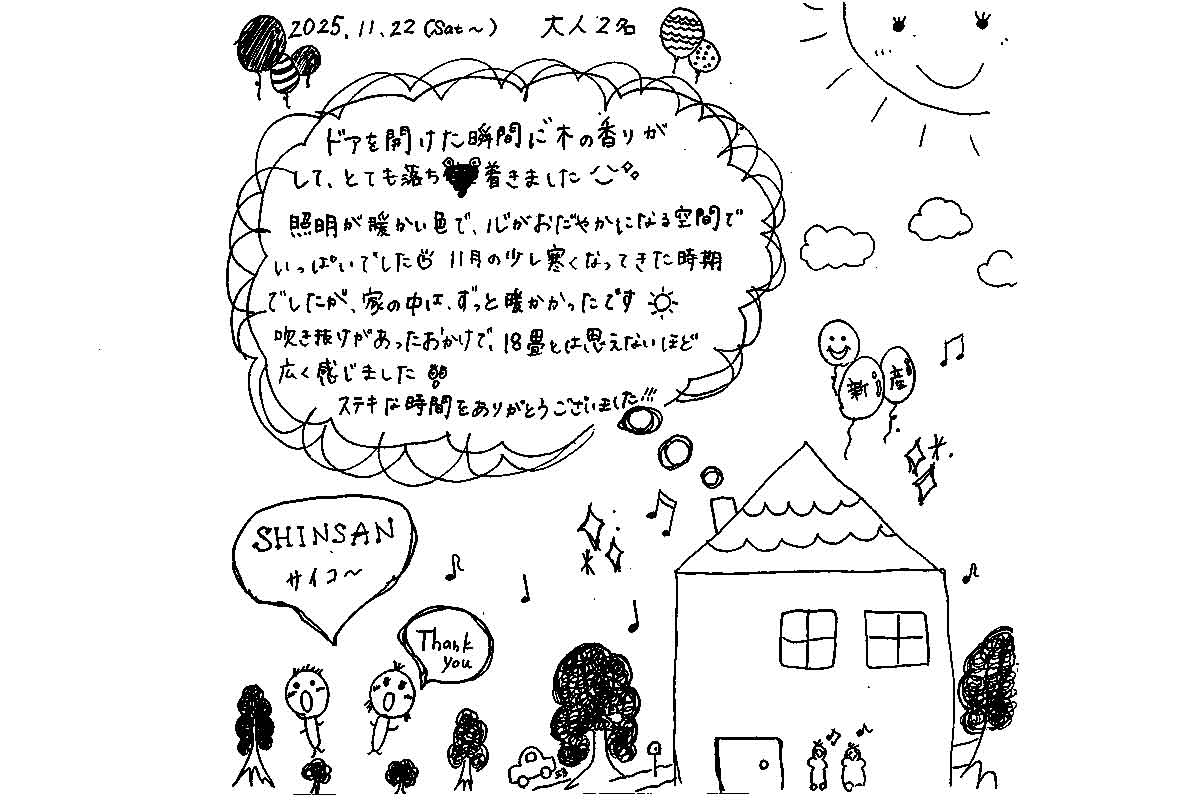 2025.11.22(Sat〜) 大人2名
ドアを開けた瞬間に木の香りが
して、とても落ち着きました
照明が暖かい色で、心がおだやかになる空間で
いっぱいでした 11月の少し寒くなってきた時期
でしたが、家の中は、ずっと暖かかったです
吹き抜けがあったおかげで、18畳とは思えないほど
広く感じました
ステキな時間をありがとうございました!!!
新産
SHINSAN
サイコ〜
Thank
you